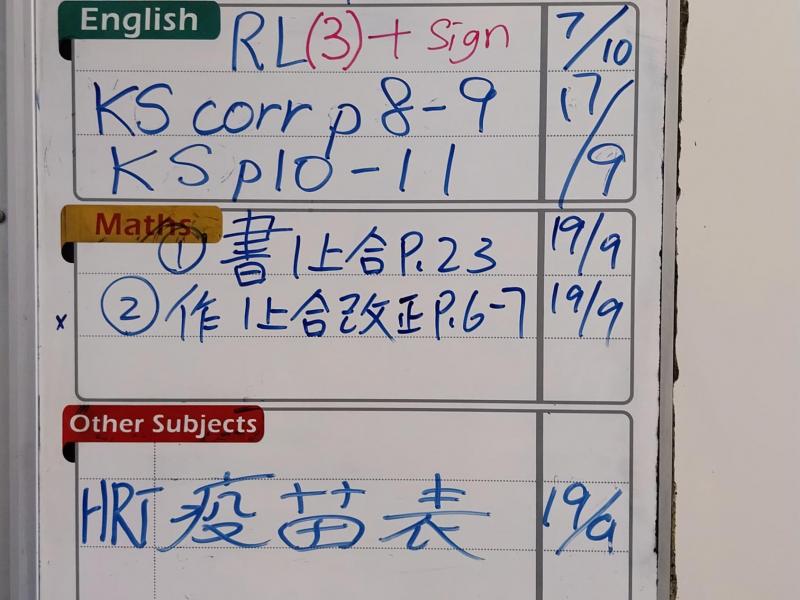 English
RL(3)+ Sign 7/10
KS corr p 8-9 17/
KS p10-11 /9
Maths
① 書 1上合 P.23 19/9
x ② 作 1上合改正 P.6-7 19/9
Other Subjects
HRT 疫苗表 19/9